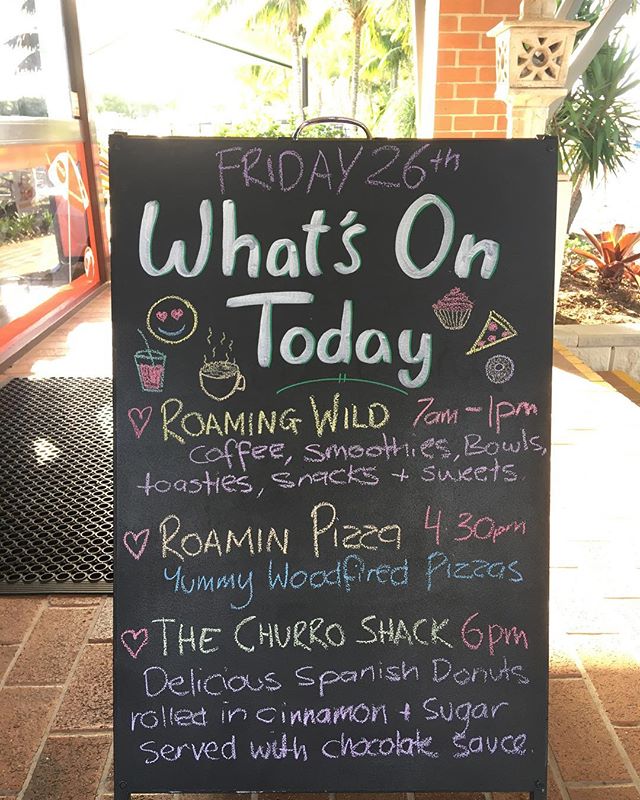 FRIDAY 26th
What's On
Today
ROAMING WILD 7am-1pm
coffee, smoothies, Bowls,
toasties, snacks + sweets.
ROAMIN Pizza 4.30pm
Yummy Woodfired Pizzas
THE CHURRO SHACK 6pm
Delicious Spanish Donuts
rolled in cinnamon + Sugar
served with chocolate sauce.